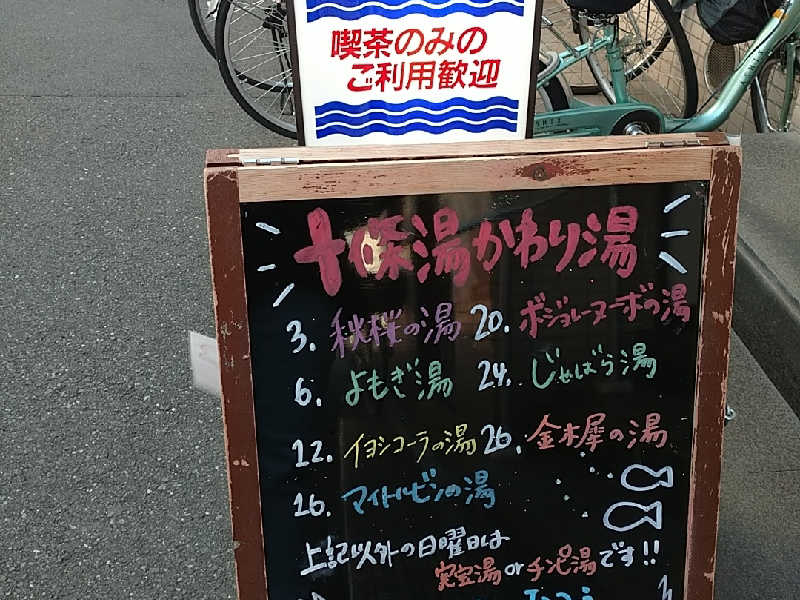 喫茶のみの
ご利用歓迎
十條湯かわり湯
3. 秋桜の湯
20. ボジョレーヌーボの湯
6. よもぎ湯
24. じゃばら湯
12. イヨシコーラの湯
26. 金木犀の湯
16. マイトルビンの湯
上記以外の日曜日は
実宝湯orチンピ湯です!!